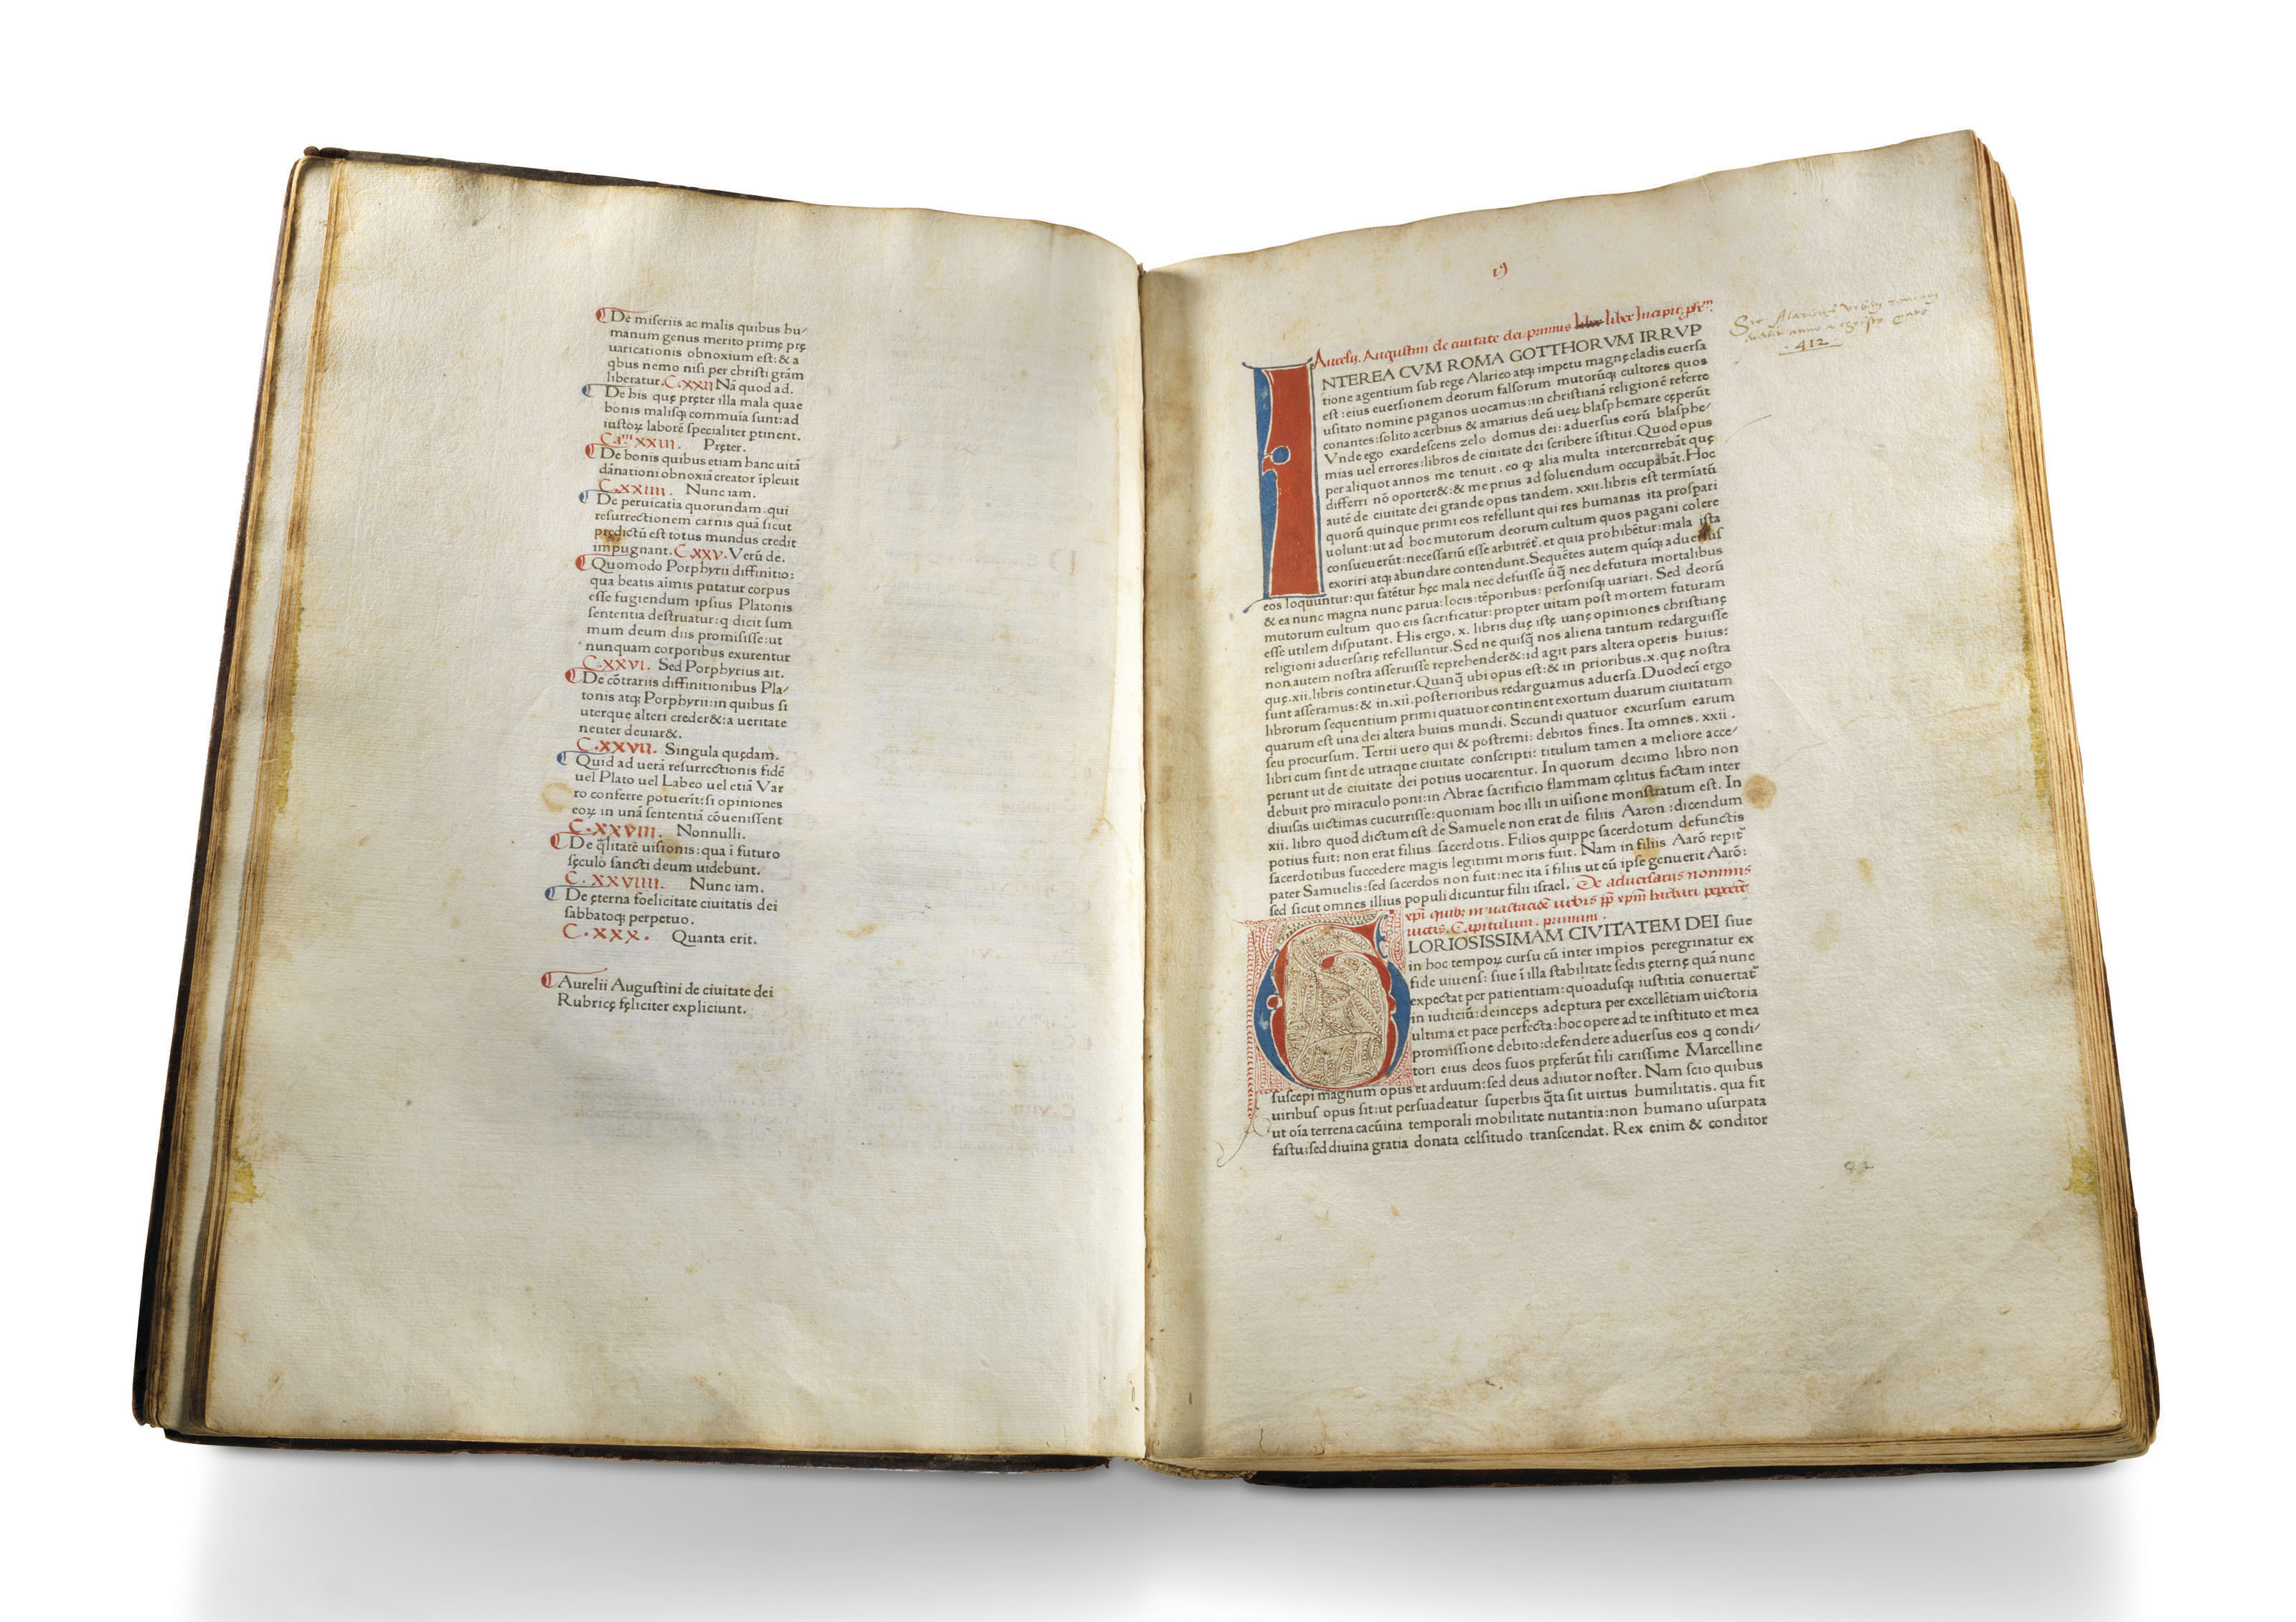 De miseriis ac malis quibus hu⸗
manum genus merito primę prę
uaricationis obnoxium est: & a
qbus nemo nisi per christi grãm
liberatur. C.XXII Nã quod ad.
De his quę pręter illa mala quae
bonis malisq; commuia sunt: ad
iustoꝝ laborẽ specialiter ptinent.
Caᵐ XXIII. Pręter.
De bonis quibus etiam hanc uitã
dãnationi obnoxiã creator ĩpleuit
C.XXIIII. Nunc iam.
De peruicatia quorundam. qui
resurrectionem carnis quã sicut
predictũ est totus mundus credit
impugnant. C.XXV. Verũ de.
Quomodo Porphyrii diffinitio:
qua beatis aĩmis putatur corpus
esse fugiendum ipsius Platonis
sententia destruatur: q dicit sum
mum deum diis promisisse: ut
nunquam corporibus exurentur
C.XXVI. Sed Porphyrius ait.
De cõtrariis diffinitionibus Pla⸗
tonis atq; Porphyrii: in quibus si
uterque alteri creder&: a ueritate
neuter deuiar&.
C.XXVII. Singula quędam.
Quid ad uerã resurrectionis fidẽ
uel Plato uel Labeo uel etiã Var
ro conferre potuerĩt: si opiniones
eoꝝ in unã sententiã cõuenissent
C.XXVIII. Nonnulli.
De q̃litatẽ uisionis: qua ĩ futuro
sęculo sancti deum uidebunt.
C.XXVIIII. Nunc iam.
De ęterna foelicitate ciuitatis dei
sabbatoq; perpetuo.
C.XXX. Quanta erit.
Aurelii Augustini de ciuitate dei
Rubricę fęliciter expliciunt.
19
Aurelij. Augustini de ciuitate dei. primus liber Incipit
INTEREA CVM ROMA GOTTHORVM IRRVP
tione agentium sub rege Alarico atq; impetu magnę cladis euersa
est: eius euersionem deorum falsorum mutorũq; cultores quos
usitato nomine paganos uocamus: in christianã religionẽ referre
conantes: solito acerbius & amarius deũ ueꝝ blasphemare cęperũt
Vnde ego exardescens zelo domus dei: aduersus eorũ blasphe⸗
mias uel errores: libros de ciuitate dei scribere ĩstitui. Quod opus
per aliquot annos me tenuit. eo ꝙ alia multa intercurrebãt quę
differri nõ oporter&: & me prius ad soluendum occupãbãt. Hoc
autẽ de ciuitate dei grande opus tandem. xxii. libris est termĩatũ
quorũ quinque primi eos refellunt qui res humanas ita prosperari
uolunt: ut ad hoc mutorum deorum cultum quos pagani colere
consueuerũt: necessariũ esse arbitrẽt. et quia prohibẽtur: mala ista
exoriri atq; abundare contendunt. Sequẽtes autem quĩq; aduersus
eos loquuntur: qui fatẽtur hęc mala nec defuisse ũq̃ nec defutura mortalibus
& ea nunc magna nunc parua: locis: tẽporibus: personisq; uariari. Sed deorũ
mutorum cultum quo eis sacrificatur: propter uitam post mortem futuram
esse utilem disputant. His ergo. x. libris duę istę uanę opiniones christianę
religioni aduersarię refelluntur. Sed ne quisq̃ nos aliena tantum redarguisse
non autem nostra asseruisse reprehender&: id agit pars altera operis huius:
quę. xii. libris continetur. Quanq̃ ubi opus est: & in prioribus. x. quę nostra
sunt asseramus: & in. xii. posterioribus redarguamus aduersa. Duodecĩ ergo
librorum sequentium primi quatuor continent exortum duarum ciuitatum
quarum est una dei altera huius mundi. Secundi quatuor excursum earum
seu procursum. Tertii uero qui & postremi: debitos fines. Ita omnes. xxii.
libri cum sint de utraque ciuitate conscripti: titulum tamen a meliore acce⸗
perunt ut de ciuitate dei potius uocarentur. In quorum decimo libro non
debuit pro miraculo poni: in Abrae sacrificio flammam cęlitus factam inter
diuisas uictimas cucurrisse: quoniam hoc illi in uisione monstratum est. In
xii. libro quod dictum est de Samuele non erat de filiis Aaron: dicendum
potius fuit: non erat filius sacerdotis. Filios quippe sacerdotum defunctis
sacerdotibus succedere magis legitimi moris fuit. Nam in filiis Aarõ repit̃
pater Samuelis: sed sacerdos non fuit: nec ita ĩ filiis ut eũ ipse genuerit Aarõ:
sed sicut omnes illius populi dicuntur filii israel. De aduersariis nominis
xpi quibꝫ in uastatiõe urbis
uictis. Capitulum. primum.
GLORIOSISSIMAM CIVITATEM DEI siue
in hoc tempoꝝ cursu cũ inter impios peregrinatur ex
fide uiuens: siue ĩ illa stabilitate sedis ęternę quã nunc
expectat per patientiam: quoadusq; iustitia conuertat̃
in iudiciũ: deinceps adeptura per excellẽtiam uictoria
ultima et pace perfecta: hoc opere ad te instituto et mea
promissione debito: defendere aduersus eos q condi⸗
tori eius deos suos pręferũt fili carissime Marcelline
suscepi magnum opus et arduum: sed deus adiutor noster. Nam scio quibus
uiribus opus sit: ut persuadeatur superbis q̃ta sit uirtus humilitatis. qua fit
ut oĩa terrena cacũina temporali mobilitate nutantia: non humano usurpata
fastu: sed diuina gratia donata celsitudo transcendat. Rex enim & conditor
.412.